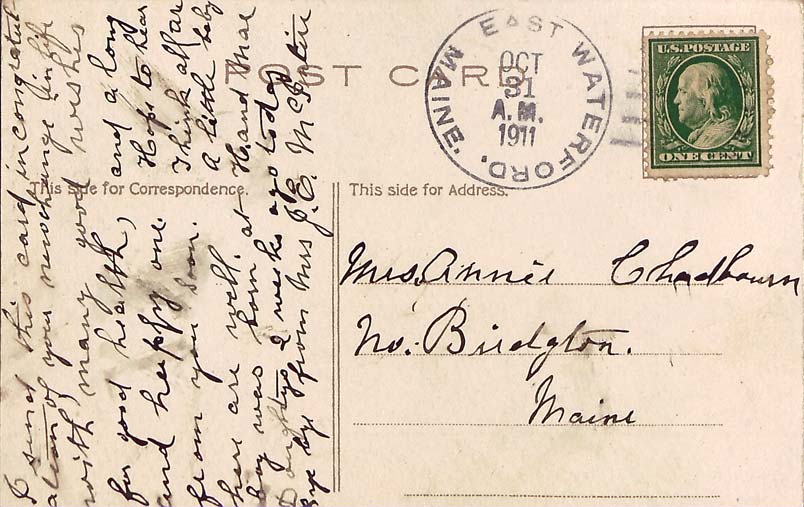 POST CARD
EAST WATERFORD, MAINE.
OCT
31
A.M.
1911
U.S. POSTAGE
ONE CENT
This side for Correspondence.
This side for Address.
Mrs. Annie Chadbourn
No. Bridgton.
Maine
I send this card in congratul
ation of your new change in life
with many good wishes
for good health, and a long
and happy one. Hope to hear
from you soon. I think all are
here are well. A little baby
boy was born at H and Mae
Doughtys 2 weeks ago today
Bye bye from Mrs J. E. Mc